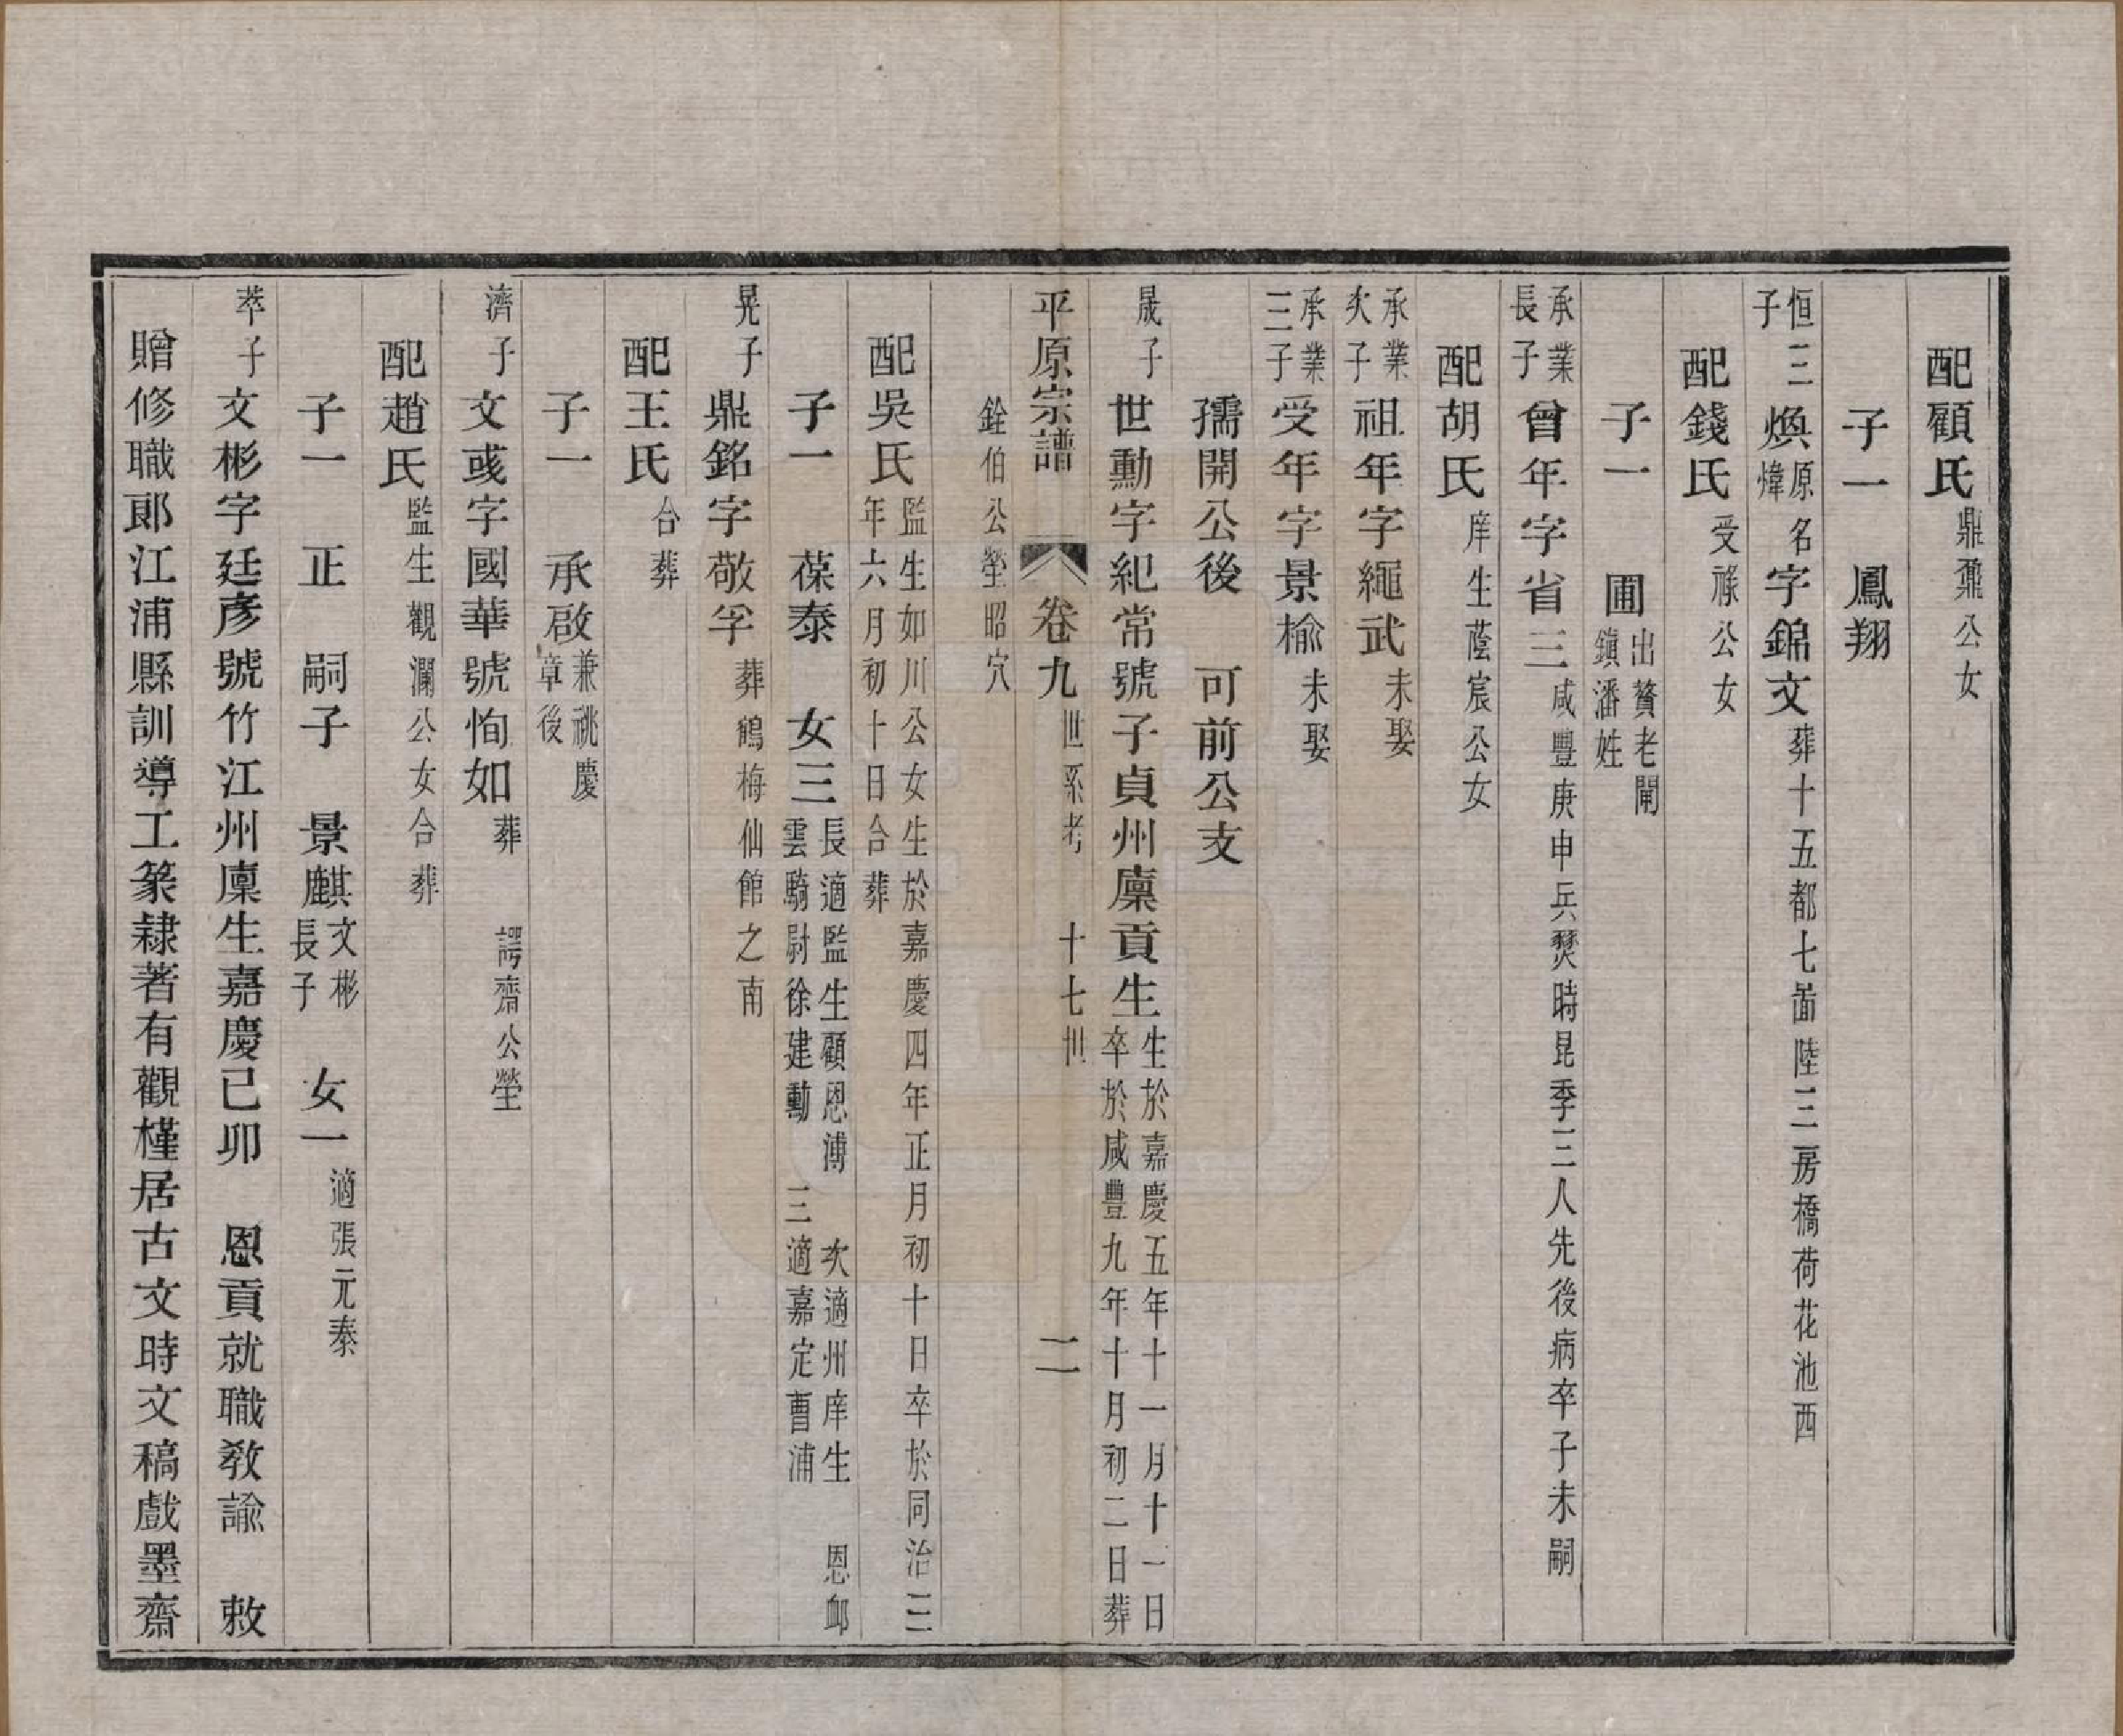 配顧氏鼎鼐公女
子一　鳳翔
恒三子煥原名煒字錦文葬十五都七啚陸三房橋荷花池西
配錢氏受祿公女
子一　圃出贅老閘鎮潘姓
承業長子曾年字省三咸豐庚申兵燹時昆季三人先後病卒子未嗣
配胡氏庠生蔭宸公女
承業次子祖年字繩武未娶
承業三子受年字景榆未娶
孺開公後　可前公支
晟子世勳字紀常號子貞州廩貢生生於嘉慶五年十一月十一日卒於咸豐九年十月初二日葬
平原宗譜　卷九世系考　十七世　二
銓伯公塋昭穴
配吳氏監生如川公女生於嘉慶四年正月初十日卒於同治三年六月初十日合葬
子一　葆泰　女三長適監生顧恩溥　次適州庠生　恩卹雲騎尉徐建勳　三適嘉定曹浦
晃子鼎銘字敬孚葬鶴梅仙館之南
配王氏合葬
子一　承啟兼祧慶章後
濟子文彧字國華號恂如葬　諤齋公塋
配趙氏監生觀瀾公女合葬
子一　正　嗣子　景麒文彬長子　女一適張元泰
萃子文彬字廷彥號竹江州廩生嘉慶己卯　恩貢就職教諭　敕
贈修職郞江浦縣訓導工篆隸著有觀槿居古文時文稿戲墨齋